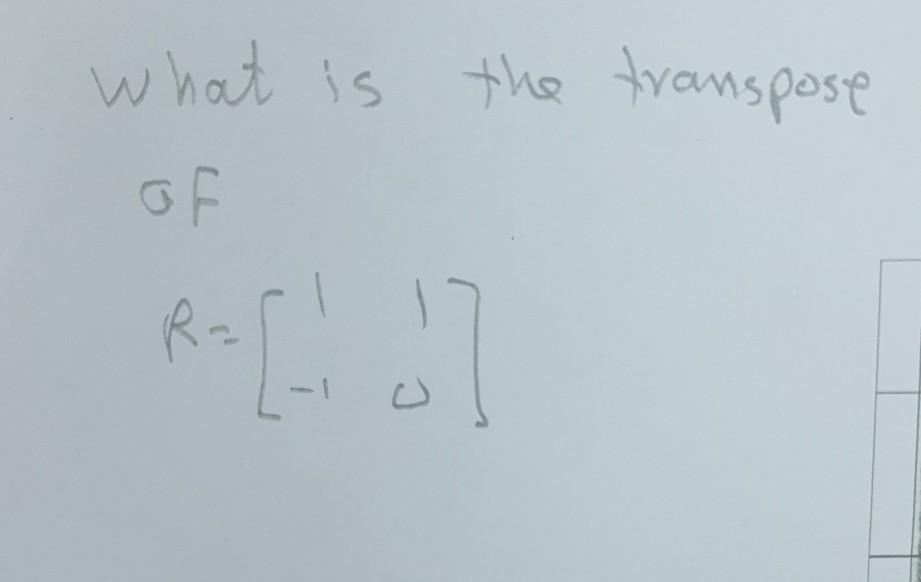 What is the transpose
of
R = [ 1 1
-1 0 ]